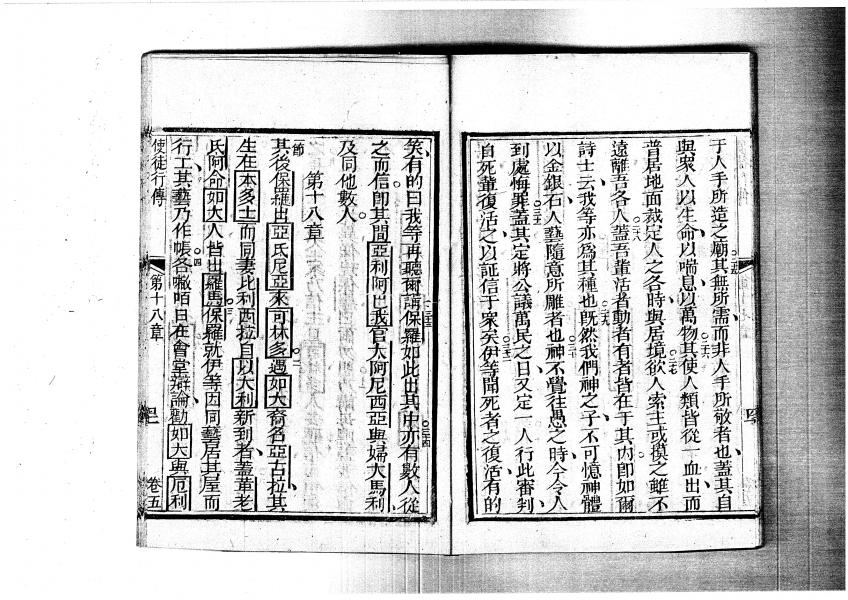 于人手所造之廟其無所需而非人手所敬者也蓋其自
與眾人以生命以喘息以萬物其使人類皆從一血出而
普居地面裁定人之各時與居境欲人索主或摸之雖不
遠離吾各人蓋吾輩活者動者有者皆在于其内即如爾
詩士云我等亦為其種也既然我們神之子不可憶神體
以金銀石人藝隨意所雕者也神不覺往愚之時今令人
到處悔罪蓋其定將公議萬民之日又定一人行此審判
自死輩復活之以証信于眾矣伊等聞死者之復活有的
笑有的曰我等再聽爾講保羅如此出其中亦有數人從
之而信即其間亞利阿巴我官大阿尼西亞與婦大馬利
及同他數人
第十八章
節
其後保羅出亞氏尼亞來可林多遇如大裔名亞古拉其
生在本多士而同妻比利西拉自以大利新到者蓋革老
氏阿命如大人皆出羅馬保羅就伊等因同藝居其屋而
行工其藝乃作帳各嗽咟日在會堂辯論勸如大與厄利
使徒行傳
第十八章
卷五